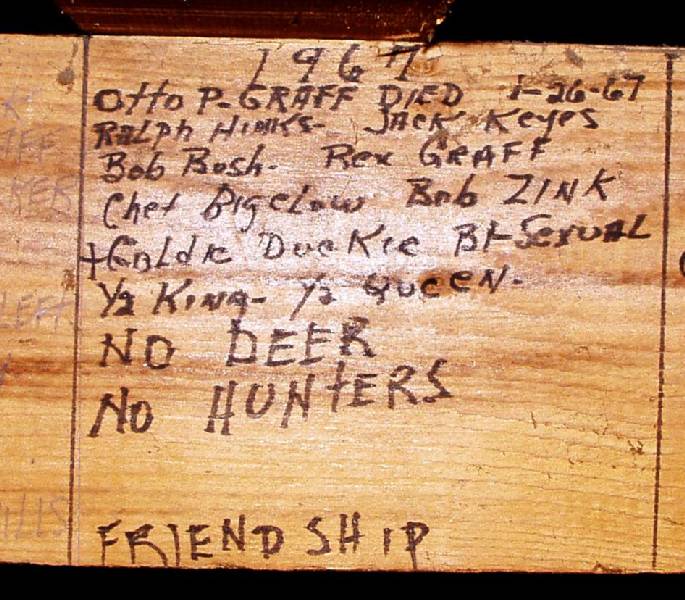 1967
Otto P. GRAFF DIED 1-26-67
RALPH HINKS- JACK Keyes
Bob Bosh. Rex GRAFF
Chet Bigelow Bob ZINK
+Goldie Duckie BI-SexuAL
1/2 KING- 1/2 QUEEN.
NO DEER
NO HUNtERS
FRIENDSHIP